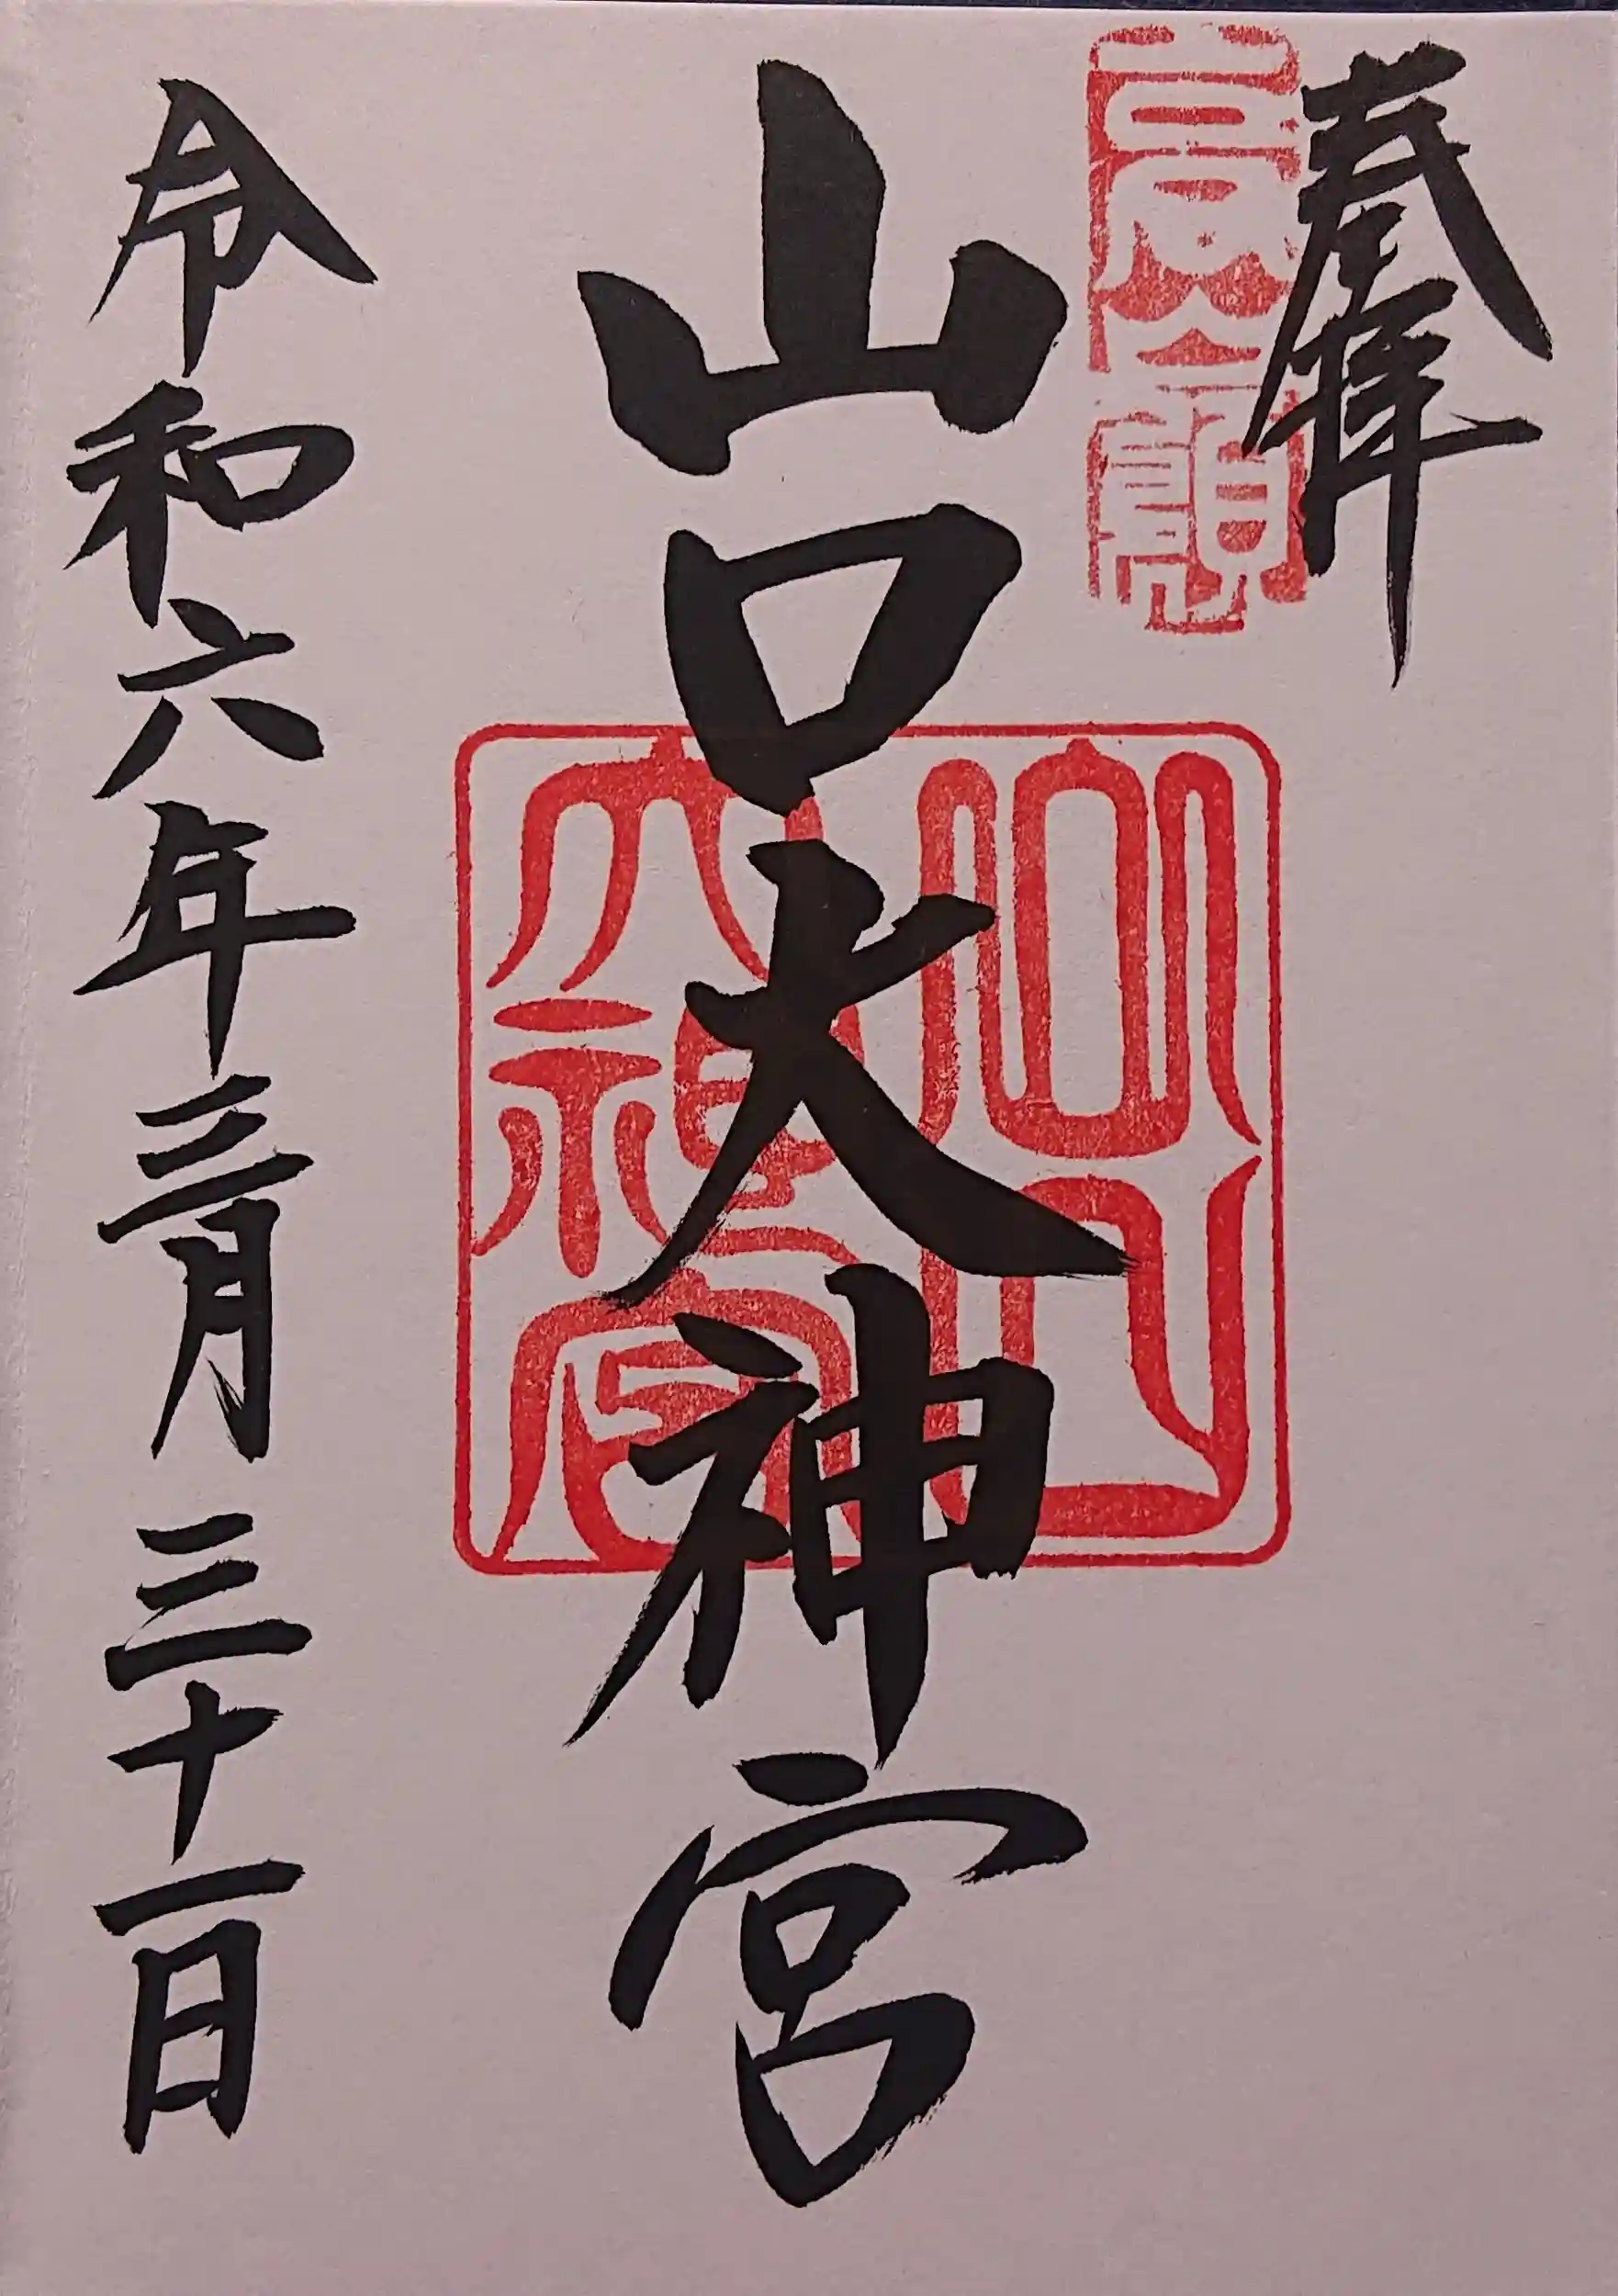 奉拝
山口大神宮
令和六年三月三十一日
山口
大神宮